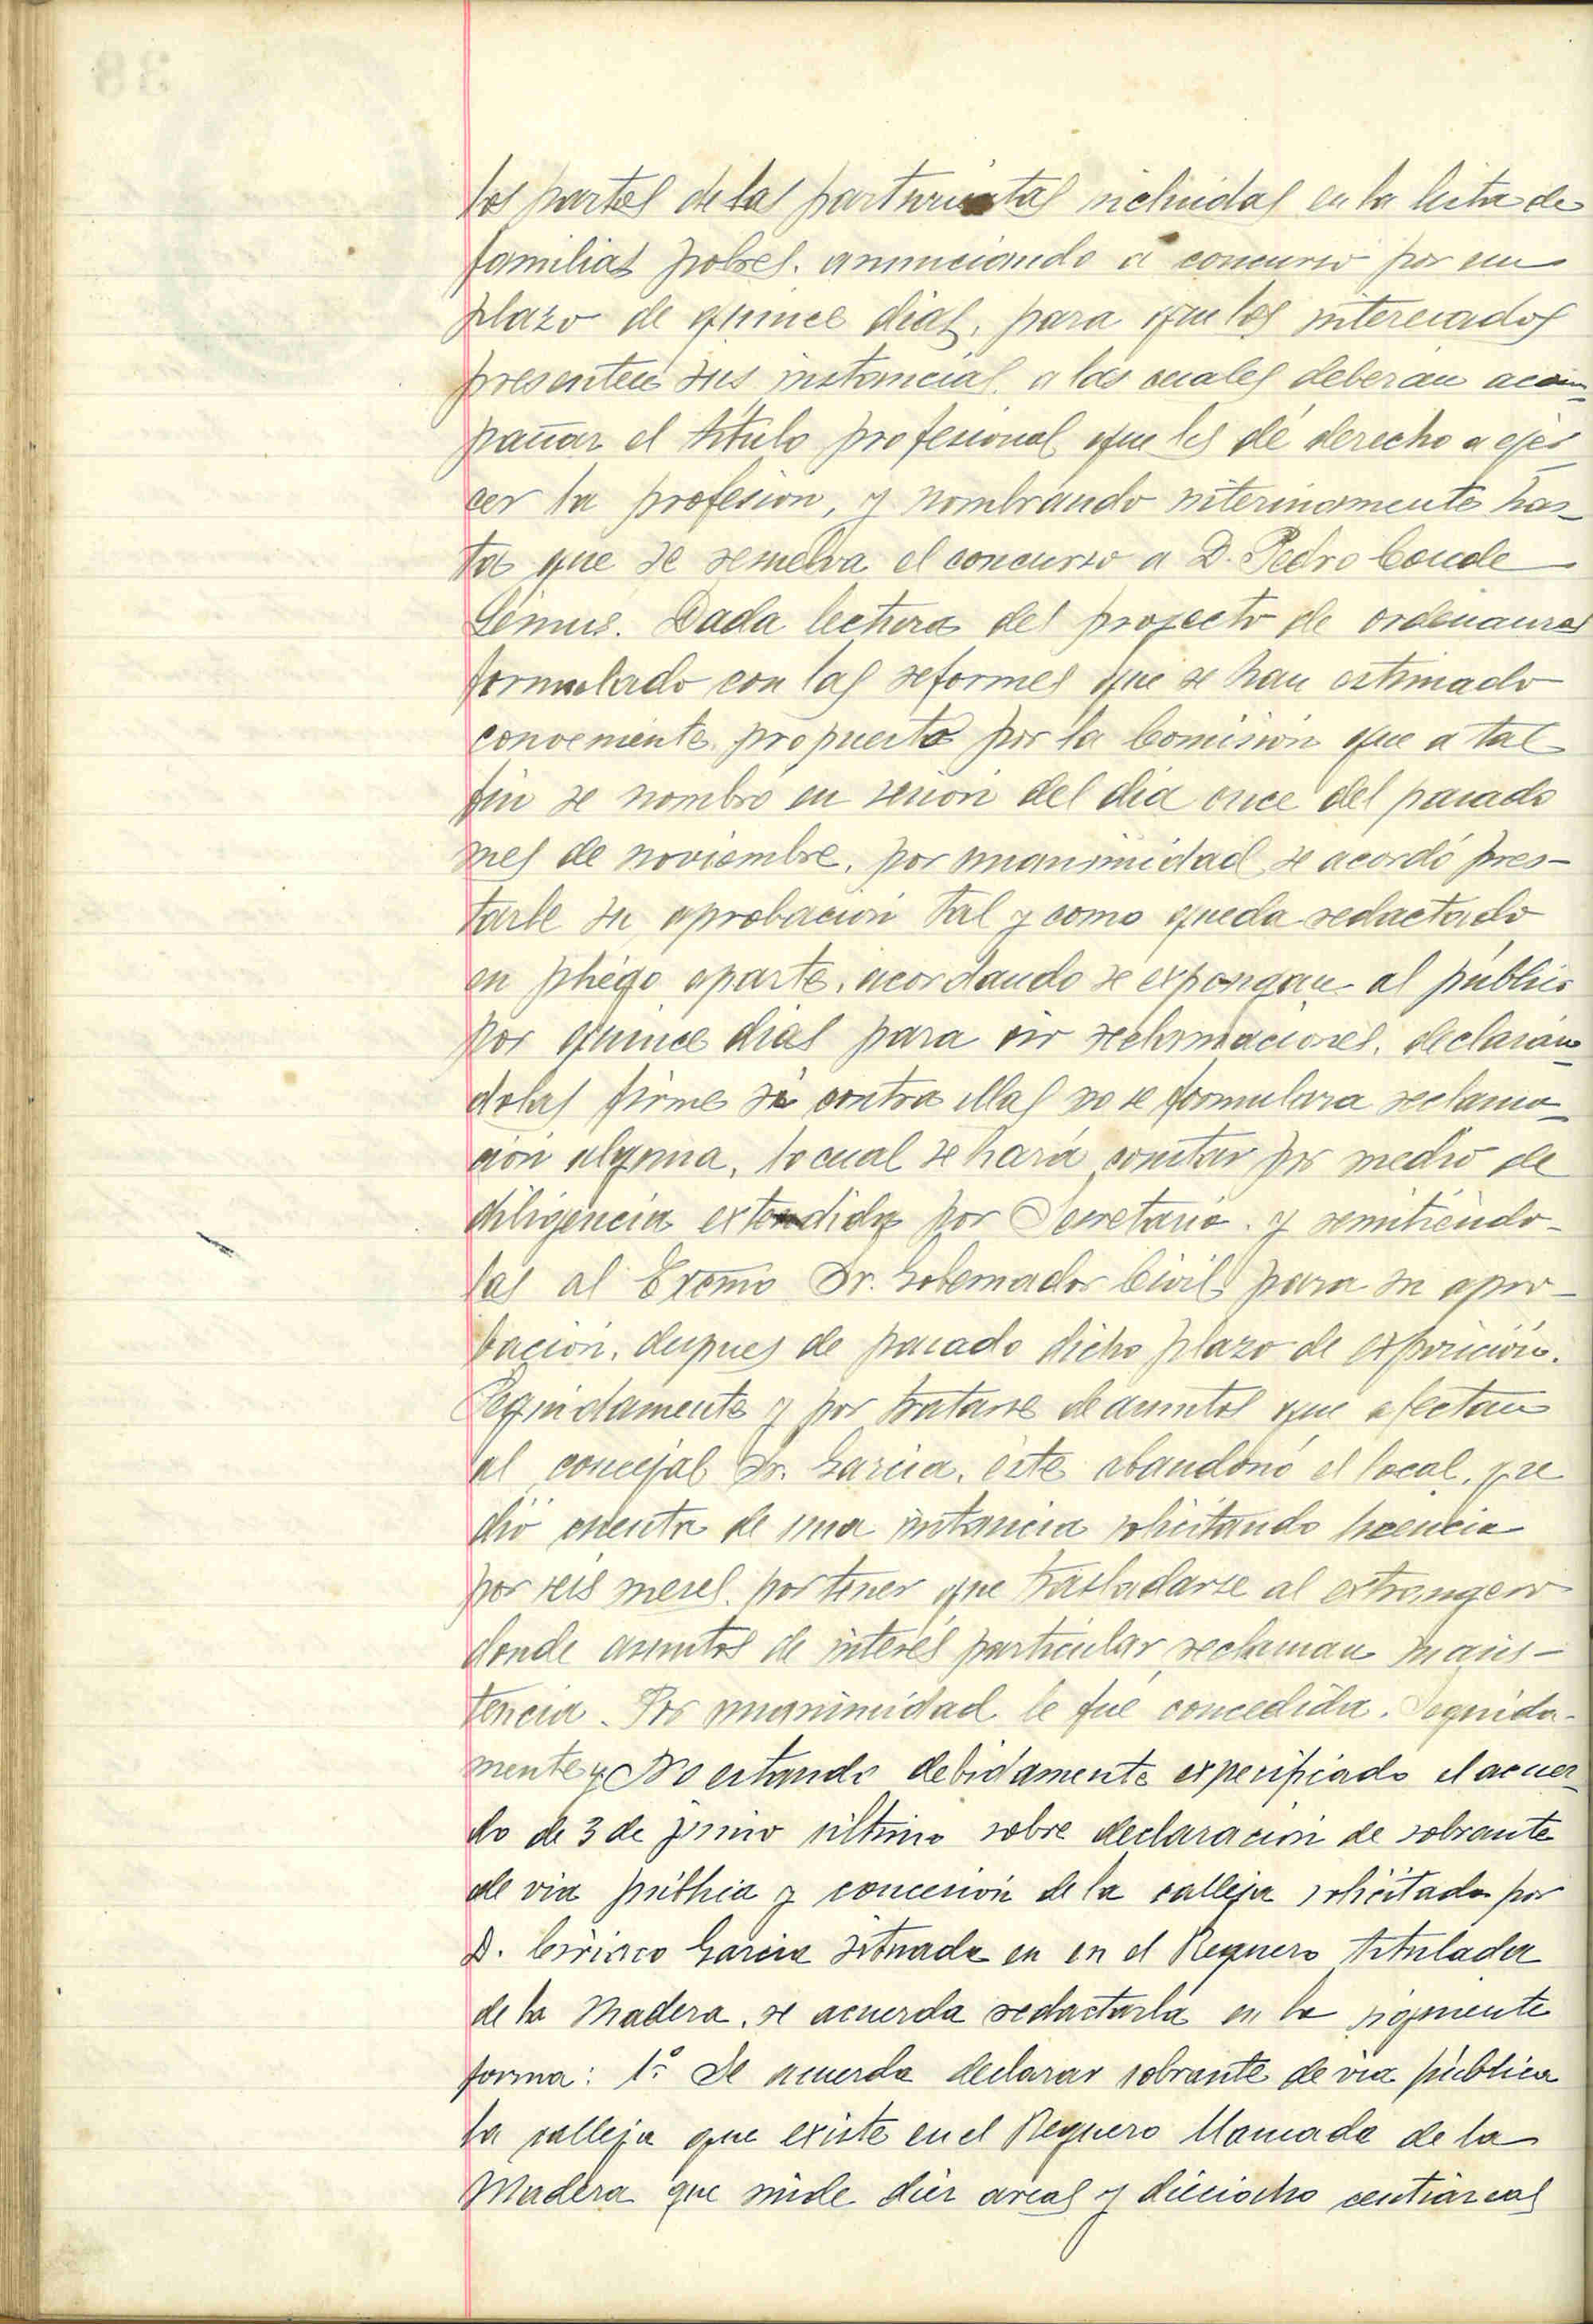 los partos de las parturientas incluidas en la lista de
familias pobres, anunciando a concurso por un
plazo de quince dias, para que los interesados
presenten sus instancias, a las cuales deberán acom-
pañar el título profesional que les dé derecho a ejer-
cer la profesion, y nombrando interinamente has-
ta que se resuelva el concurso a D. Pedro Conde
Lemus. Dada lectura del proyecto de ordenanzas
formulado con las reformes que se han estimado
conveniente, propuesto por la Comisión que a tal
fin se nombró en sesión del día once del pasado
mes de noviembre, por unanimidad se acordó pres-
tarle su aprobación tal y como queda redactado
en pliego aparte, acordando se expongan al público
por quince dias para oir reclamaciones, declarán-
dolas firme si contra ellas no se formulara reclama-
ción alguna, lo cual se hará constar por medio de
diligencia extendida por Secretaria, y remitiéndo-
las al Excmo Sr. Gobernador Civil para su apro-
bación, despues de pasado dicho plazo de exposición.
Seguidamente y por tratarse de asuntos que afectan
al concejal Sr. Garcia, éste abandonó el local, y se
dió cuenta de una instancia solicitando licencia
por seis meses por tener que trasladarse al extrangero
donde asuntos de interés particular reclaman su asis-
tencia. Por unanimidad le fué concedida. Seguida-
mente y No estando debidamente expecificado el acuer-
do de 3 de junio último sobre declaración de sobrante
de via pública y concesión de la calleja solicitada por
D. Ciriaco Garcia situada en en el Reguero titulada
de la Madera, se acuerda redactarla en la siguiente
forma: 1.º Se acuerda declarar sobrante de via pública
la calleja que existe en el Reguero llamada de la
Madera que mide diez areas y dieciocho centiáreas